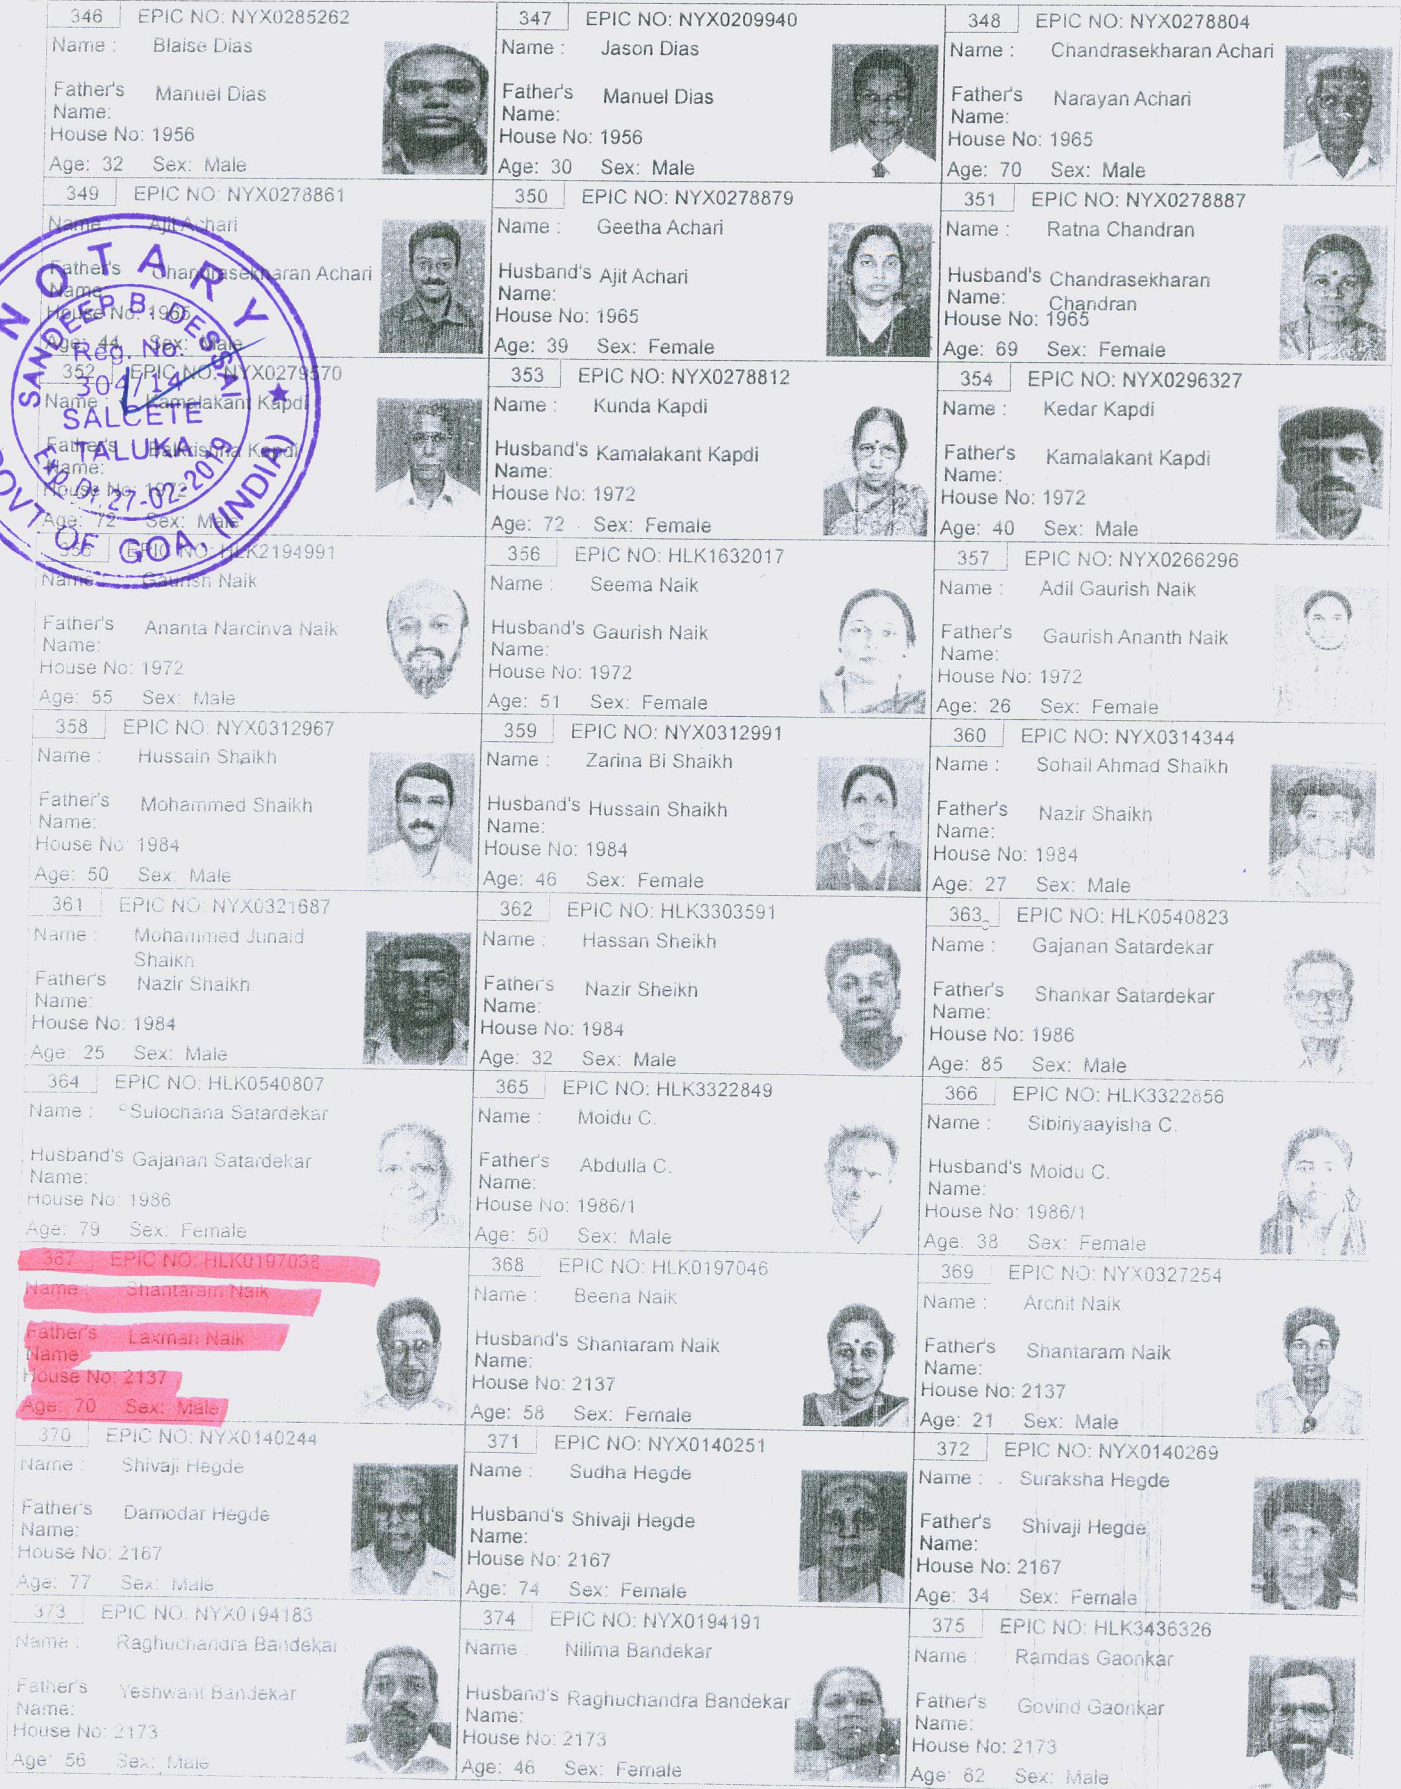 346 EPIC NO: NYX0285262
Name : Blaise Dias
Father's Manuel Dias
Name:
House No: 1956
Age: 32 Sex: Male
347 EPIC NO: NYX0209940
Name : Jason Dias
Father's Manuel Dias
Name:
House No: 1956
Age: 30 Sex: Male
348 EPIC NO: NYX0278804
Name : Chandrasekharan Achari
Father's Narayan Achari
Name:
House No: 1965
Age: 70 Sex: Male
349 EPIC NO: NYX0278861
Name : Ajit Achari
Father's Chandrasekharan Achari
Name:
House No: 1965
Age: 44 Sex: Male
350 EPIC NO: NYX0278879
Name : Geetha Achari
Husband's Ajit Achari
Name:
House No: 1965
Age: 39 Sex: Female
351 EPIC NO: NYX0278887
Name : Ratna Chandran
Husband's Chandrasekharan
Name: Chandran
House No: 1965
Age: 69 Sex: Female
NOTARY
SANDEEP B. DESSAI
Reg. No.
304/14
SALCETE
TALUKA
Exp. Dt. 27-02-2019
GOVT OF GOA, (INDIA)
352 EPIC NO: NYX0279570
Name : Kamalakant Kapdi
Father's Balkrishna Kapdi
Name:
House No: 1972
Age: 72 Sex: Male
353 EPIC NO: NYX0278812
Name : Kunda Kapdi
Husband's Kamalakant Kapdi
Name:
House No: 1972
Age: 72 Sex: Female
354 EPIC NO: NYX0296327
Name : Kedar Kapdi
Father's Kamalakant Kapdi
Name:
House No: 1972
Age: 40 Sex: Male
355 EPIC NO: HLK2194991
Name : Gaurish Naik
Father's Ananta Narcinva Naik
Name:
House No: 1972
Age: 55 Sex: Male
356 EPIC NO: HLK1632017
Name : Seema Naik
Husband's Gaurish Naik
Name:
House No: 1972
Age: 51 Sex: Female
357 EPIC NO: NYX0266296
Name : Adil Gaurish Naik
Father's Gaurish Ananth Naik
Name:
House No: 1972
Age: 26 Sex: Female
358 EPIC NO: NYX0312967
Name : Hussain Shaikh
Father's Mohammed Shaikh
Name:
House No: 1984
Age: 50 Sex: Male
359 EPIC NO: NYX0312991
Name : Zarina Bi Shaikh
Husband's Hussain Shaikh
Name:
House No: 1984
Age: 46 Sex: Female
360 EPIC NO: NYX0314344
Name : Sohail Ahmad Shaikh
Father's Nazir Shaikh
Name:
House No: 1984
Age: 27 Sex: Male
361 EPIC NO: NYX0321687
Name : Mohammed Junaid
Shaikh
Father's Nazir Shaikh
Name:
House No: 1984
Age: 25 Sex: Male
362 EPIC NO: HLK3303591
Name : Hassan Sheikh
Father's Nazir Sheikh
Name:
House No: 1984
Age: 32 Sex: Male
363 EPIC NO: HLK0540823
Name : Gajanan Satardekar
Father's Shankar Satardekar
Name:
House No: 1986
Age: 85 Sex: Male
364 EPIC NO: HLK0540807
Name : Sulochana Satardekar
Husband's Gajanan Satardekar
Name:
House No: 1986
Age: 79 Sex: Female
365 EPIC NO: HLK3322849
Name : Moidu C.
Father's Abdulla C.
Name:
House No: 1986/1
Age: 50 Sex: Male
366 EPIC NO: HLK3322856
Name : Sibiriyaayisha C.
Husband's Moidu C.
Name:
House No: 1986/1
Age: 38 Sex: Female
367 EPIC NO: HLK0197038
Name : Shantaram Naik
Father's Laxman Naik
Name:
House No: 2137
Age: 70 Sex: Male
368 EPIC NO: HLK0197046
Name : Beena Naik
Husband's Shantaram Naik
Name:
House No: 2137
Age: 58 Sex: Female
369 EPIC NO: NYX0327254
Name : Archit Naik
Father's Shantaram Naik
Name:
House No: 2137
Age: 21 Sex: Male
370 EPIC NO: NYX0140244
Name : Shivaji Hegde
Father's Damodar Hegde
Name:
House No: 2167
Age: 77 Sex: Male
371 EPIC NO: NYX0140251
Name : Sudha Hegde
Husband's Shivaji Hegde
Name:
House No: 2167
Age: 74 Sex: Female
372 EPIC NO: NYX0140269
Name : Suraksha Hegde
Father's Shivaji Hegde
Name:
House No: 2167
Age: 34 Sex: Female
373 EPIC NO: NYX0194183
Name : Raghuchandra Bandekar
Father's Yeshwant Bandekar
Name:
House No: 2173
Age: 56 Sex: Male
374 EPIC NO: NYX0194191
Name : Nilima Bandekar
Husband's Raghuchandra Bandekar
Name:
House No: 2173
Age: 46 Sex: Female
375 EPIC NO: HLK3436326
Name : Ramdas Gaonkar
Father's Govind Gaonkar
Name:
House No: 2173
Age: 62 Sex: Male